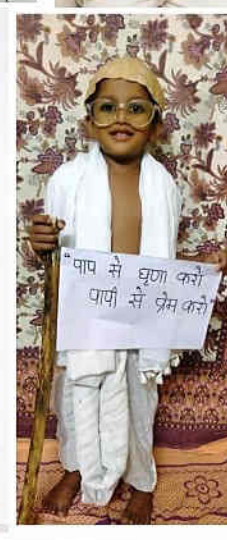 "पाप से घृणा करो
पापी से प्रेम करो"